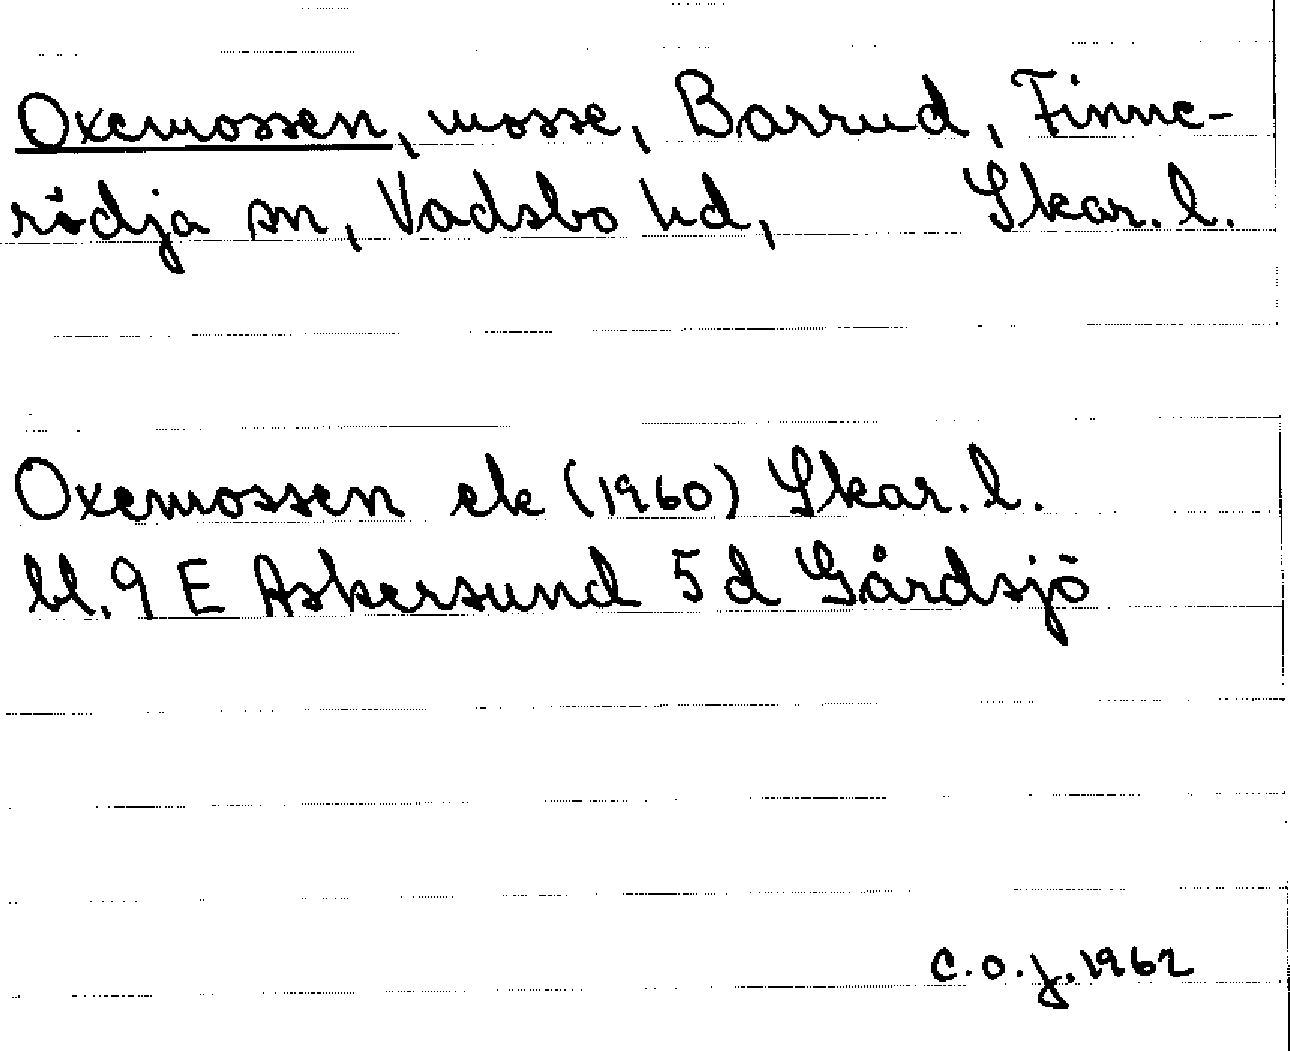 Oxemossen, mosse, Barrud, Finne-
rödja sn, Vadsbo hd, Skar. l.
Oxemossen ek (1960) Skar. l.
bl. 9 E Askersund 5 d Gårdsjö
C. O. J. 1962